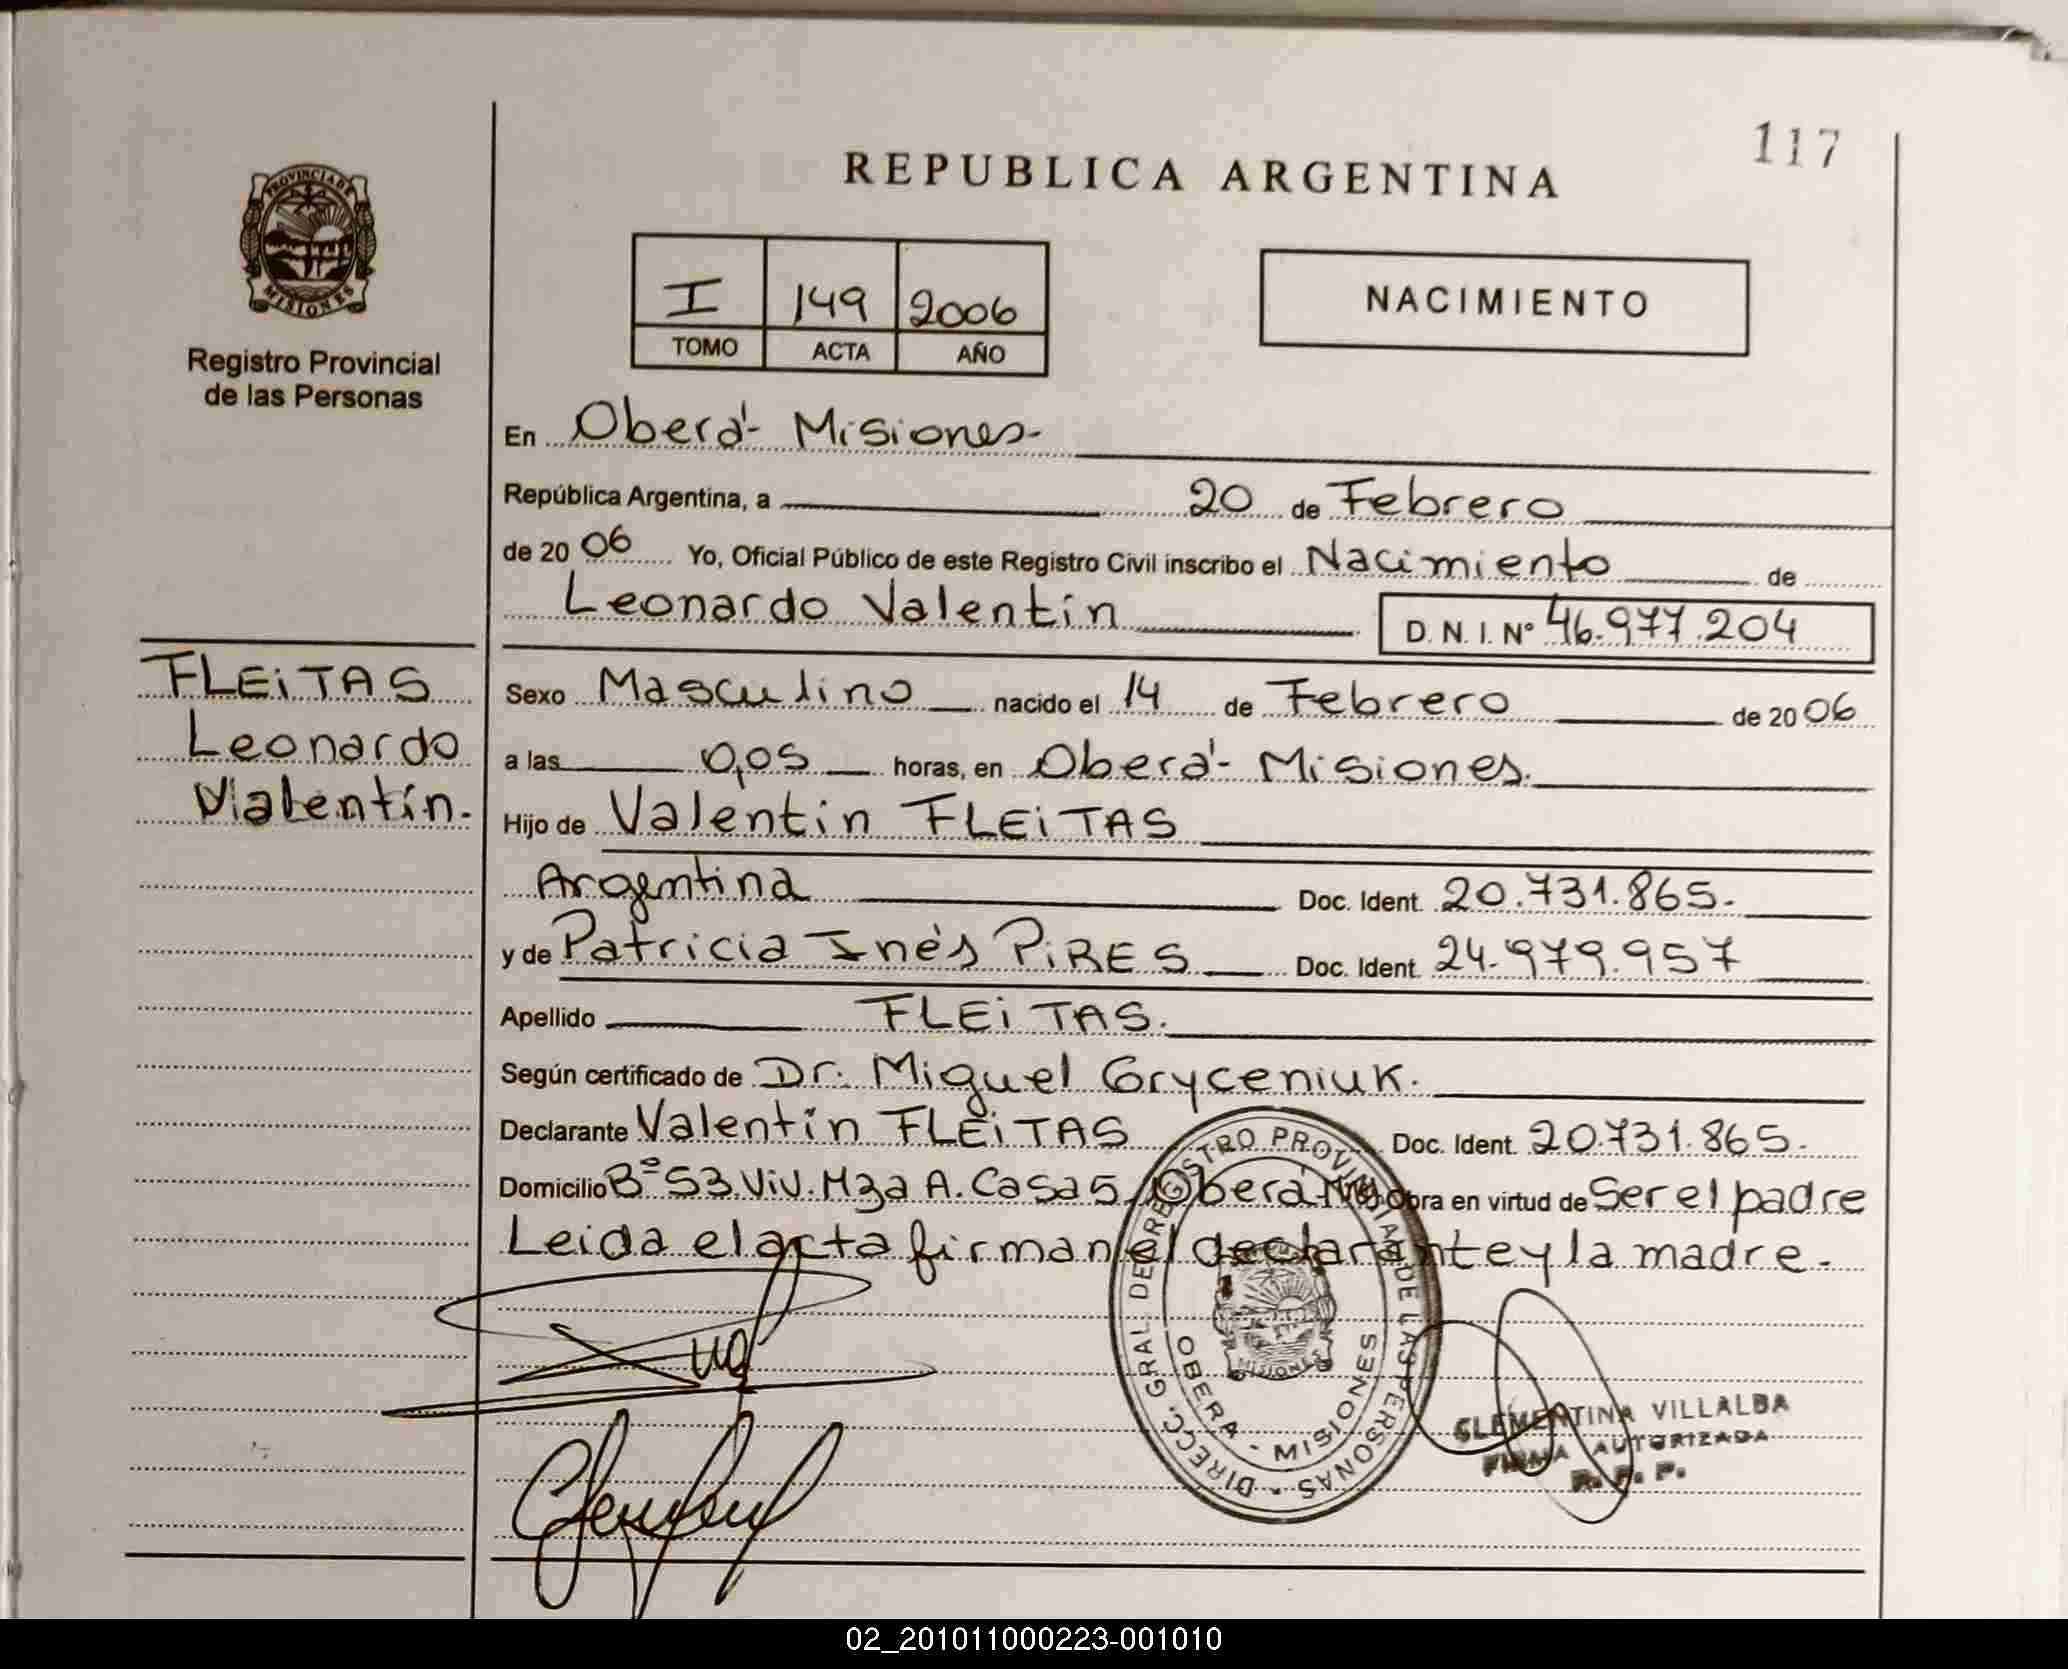 117
REPUBLICA ARGENTINA
PROVINCIA DE
MISIONES
Registro Provincial
de las Personas
I 149 2006
TOMO ACTA AÑO
NACIMIENTO
En Oberá - Misiones -
República Argentina, a 20 de Febrero
de 2006 Yo, Oficial Público de este Registro Civil inscribo el Nacimiento de
Leonardo Valentín D. N. I. Nº 46.977.204
FLEiTAS
Leonardo
Valentín.
Sexo Masculino nacido el 14 de Febrero de 2006
a las 0,05 horas, en Oberá - Misiones.
Hijo de Valentin FLEiTAS
Argentina Doc. Ident. 20.731.865.
y de Patricia Inés PiRES Doc. Ident. 24.979.957
Apellido FLEiTAS.
Según certificado de Dr. Miguel Gryceniuk.
Declarante Valentín FLEiTAS Doc. Ident. 20.731.865.
Domicilio Bº 53.Viv. Mza A. Casa 5. Oberá Mnes Obra en virtud de Ser el padre
Leida el acta firman el declarante y la madre.
DIRECC. GRAL. DE REGISTRO PROVINCIAL DE LAS PERSONAS
OBERA - MISIONES
MISIONES
CLEMENTINA VILLALBA
FIRMA AUTORIZADA
R. P. P.
02_201011000223-001010